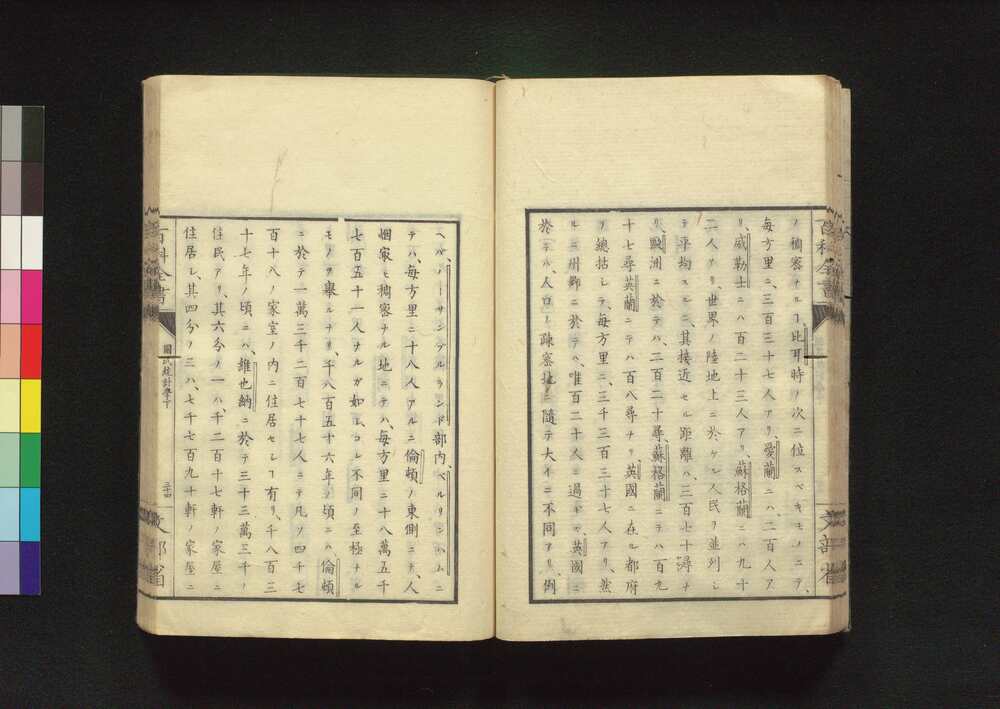 ノ稠密ナルヿ比耳時ノ次ニ位スベキモノニテ、
毎方里ニ、三百三十七人アリ、愛蘭ニハ、二百人ア
リ、威勒士ニハ百二十三人アリ、蘇格蘭ニハ九十
二人アリ、世界ノ陸地上ニ於ケル人民ヲ並列シ
テ平均スルニ、其接近セル距離ハ、三百七十潯ナ
リ、歐洲ニ於テハ、二百二十尋、蘇格蘭ニテハ百九
十七尋英蘭ニテハ百八尋ナリ、英國ニ在ル都府
ヲ總括シテ、毎方里ニ、三千三百三十七人アリ、然
ルニ州鄉ニ於テハ、唯百二十人ニ過ギズ、英國ニ
於ケル、人口ノ疎密地ニ隨テ大イニ不同アリ、例
ヘバノーサンブルランド部内、ベルリンハムニ
テハ、毎方里ニ十八人アルニ倫頓ノ東側ニテ、人
烟家モ稠密ナル地ニテハ、毎方里ニ十八萬五千
七百五十一人ナルガ如シ、コレ不同ノ至極ナル
モノヲ舉ルナリ、千八百五十六年ノ頃ニハ倫頓
ニ於テ一萬三千二百七十七人ニテ凡ソ四千七
百十八ノ家室ノ内ニ住居セシヿ有リ、千八百三
十七年ノ頃ニハ、維也納ニ於テ三十三萬三千ノ
住民アリ、其六分ノ一ハ、千二百十七軒ノ家屋ニ
住居シ、其四分ノ三ハ、七千七百九十軒ノ家屋ニ
百科全書
國民統計學下
三十四
文部省
百科全書
文部省